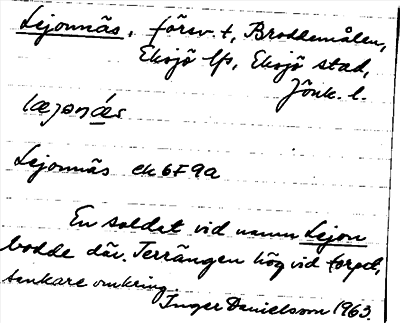 Lejonnäs, försv. t, Broddemålen,
Eksjö lfs, Eksjö stad,
Jönk. l.
læjonä̀s
Lejonnäs ek 6F9a
En soldat vid namn Lejon
bodde där. Terrängen hög vid torpet,
sankare omkring.
Inger Danielsson 1963.